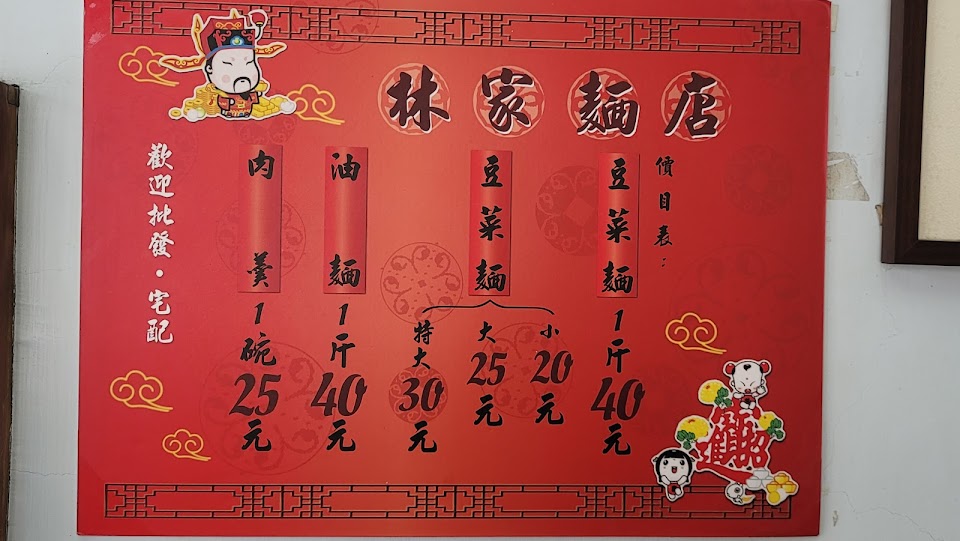 林家麵店
價目表：
豆菜麵1斤40元
豆菜麵
小20元
大25元
特大30元
油麵1斤40元
肉羹1碗25元
歡迎批發・宅配
招財進寶